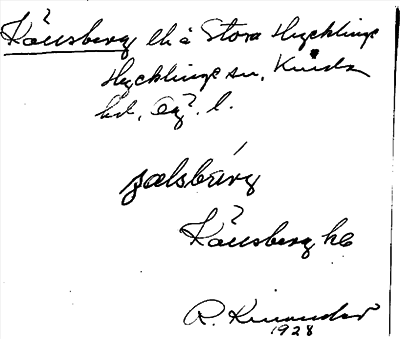 Kållsberg lh å Stora Hycklinge
Hycklinge sn, Kinda
hd, Ög. l.
jælsbärg
Kållsberg hé
R. Kinander
1928